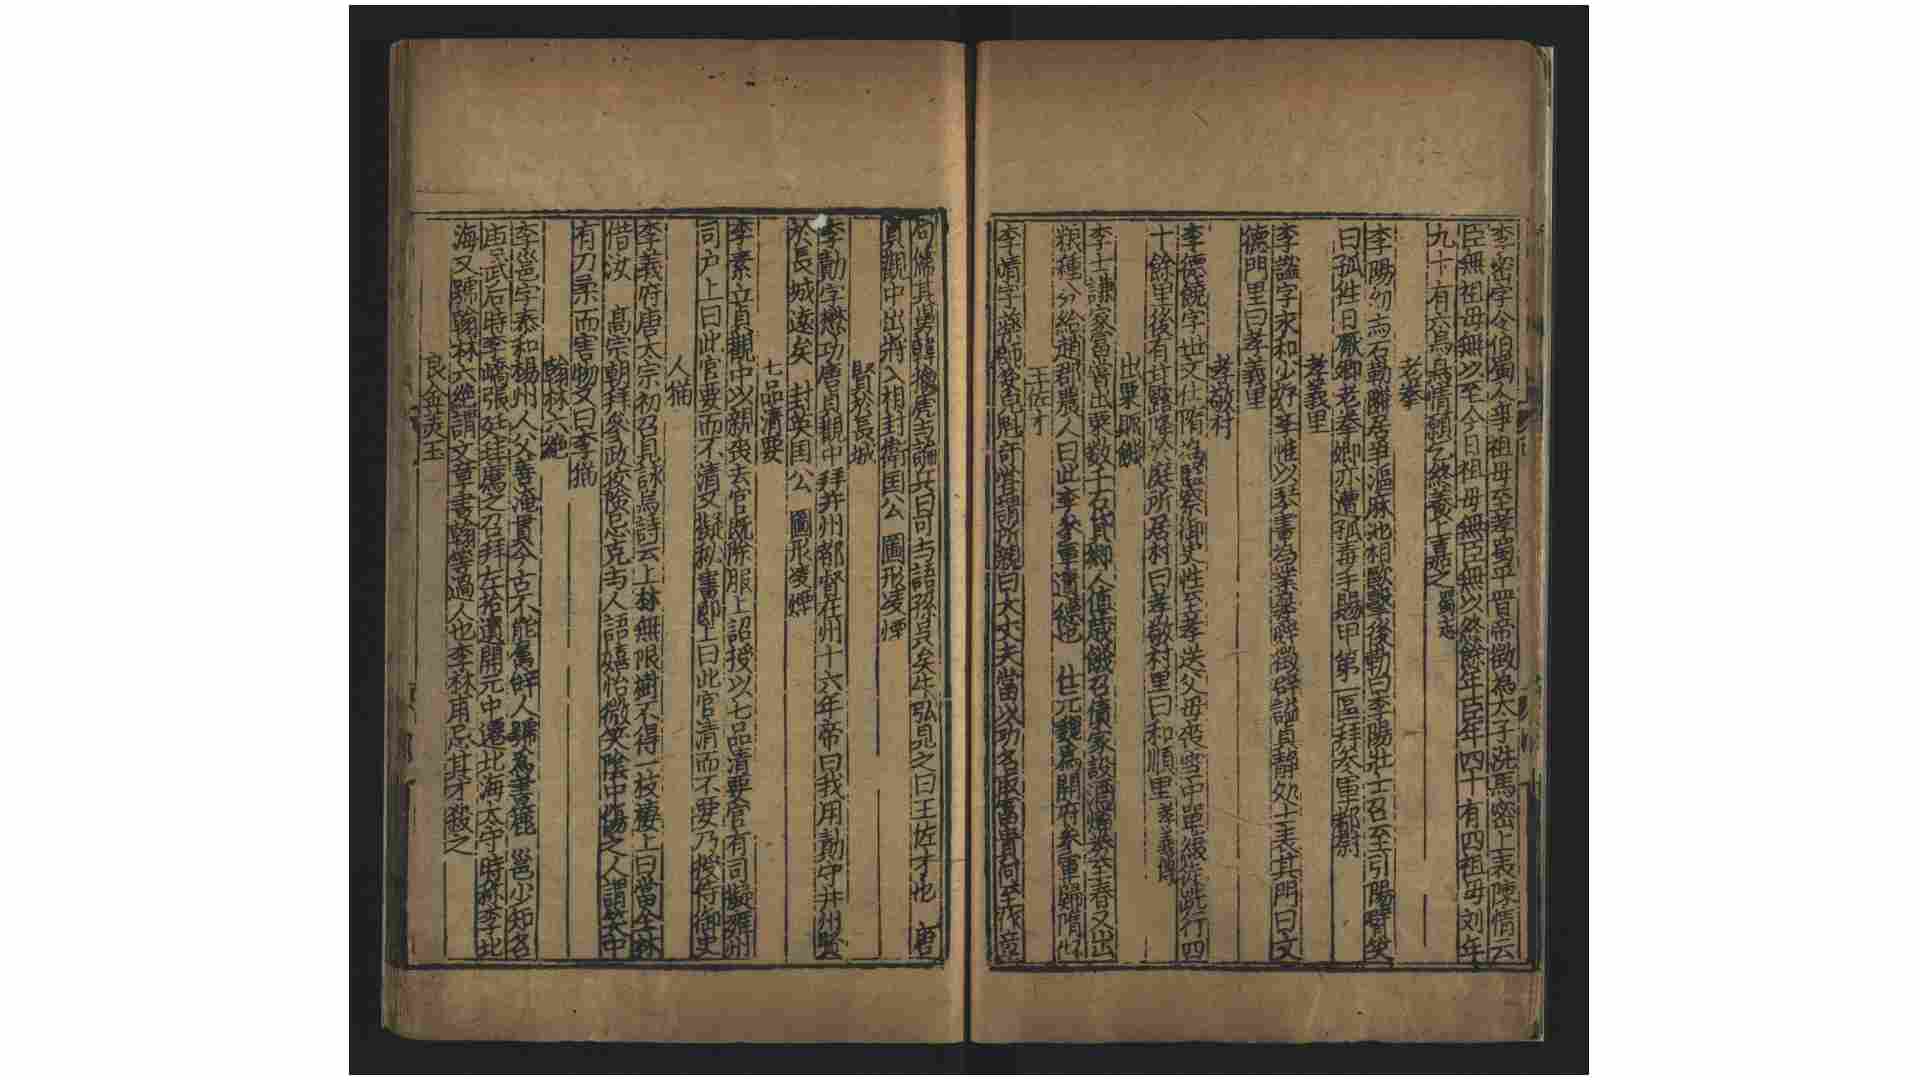 李密字令伯蜀人事祖母至孝蜀平晋帝徵為太子洗馬密上表陳情云
臣無祖母無以至今日祖母無臣無以終餘年臣年四十有四祖母刘年
九十有六烏鳥情願乞終養上嘉之 蜀志
老拳
李陽幼與石勒隣居爭漚麻池相歐擊後勒曰李陽壯士召至引陽臂笑
曰孤徃日厭卿老拳卿亦遭孤毒手賜甲第一區拜叅軍都尉
孝義里
李謐字永和少好學惟以琴書為業屢辞徵辟謚貞靜処士表其門曰文
德門里曰孝義里
孝敬村
李德饒字世文仕隋為監察御史性至孝送父母喪雪中單縗徒跣行四
十餘里後有甘露降於庭所居村曰孝敬村里曰和順里 孝義傳
出粟賑饑
李士謙家富嘗出粟数千石貸鄉人值歳饑召債家設酒燔券至春又出
粮種分給趙郡農人曰此李參軍遺德也 仕元魏為開府参軍歸隋以
王佐才
李靖字藥師姿皃魁竒嘗謂所親曰大丈夫當以功名取富貴何至作章
句儒其舅韓擒虎与論兵曰可与語孫吳矣牛弘見之曰王佐才也 唐
貞觀中出將入相封衛国公 圖形凌煙
賢於長城
李勣字懋功唐貞觀中拜并州都督在州十六年帝曰我用勣守并州賢
於長城遠矣 封英国公 圖形凌煙
七品清要
李素立貞觀中以親喪去官既除服上詔授以七品清要官有司擬雍州
司户上曰此官要而不清又擬秘書郎上曰此官清而不要乃授侍御史
人猫
李義府唐太宗初召見詠烏詩云上林無限樹不得一枝棲上曰當全林
借汝 高宗朝拜參政狡險忌克与人語嬉怡微笑陰中傷之人謂笑中
有刀柔而害物又曰李猫
翰林六絶
李邕字泰和楊州人父善淹貫今古不能属辞人號為書簏 邕少知名
唐武后時李嶠張廷珪薦之召拜左拾遺開元中遷北海太守時称李北
海又號翰林六絶謂文章書翰等過人也李林甫忌其才殺之
良金美玉